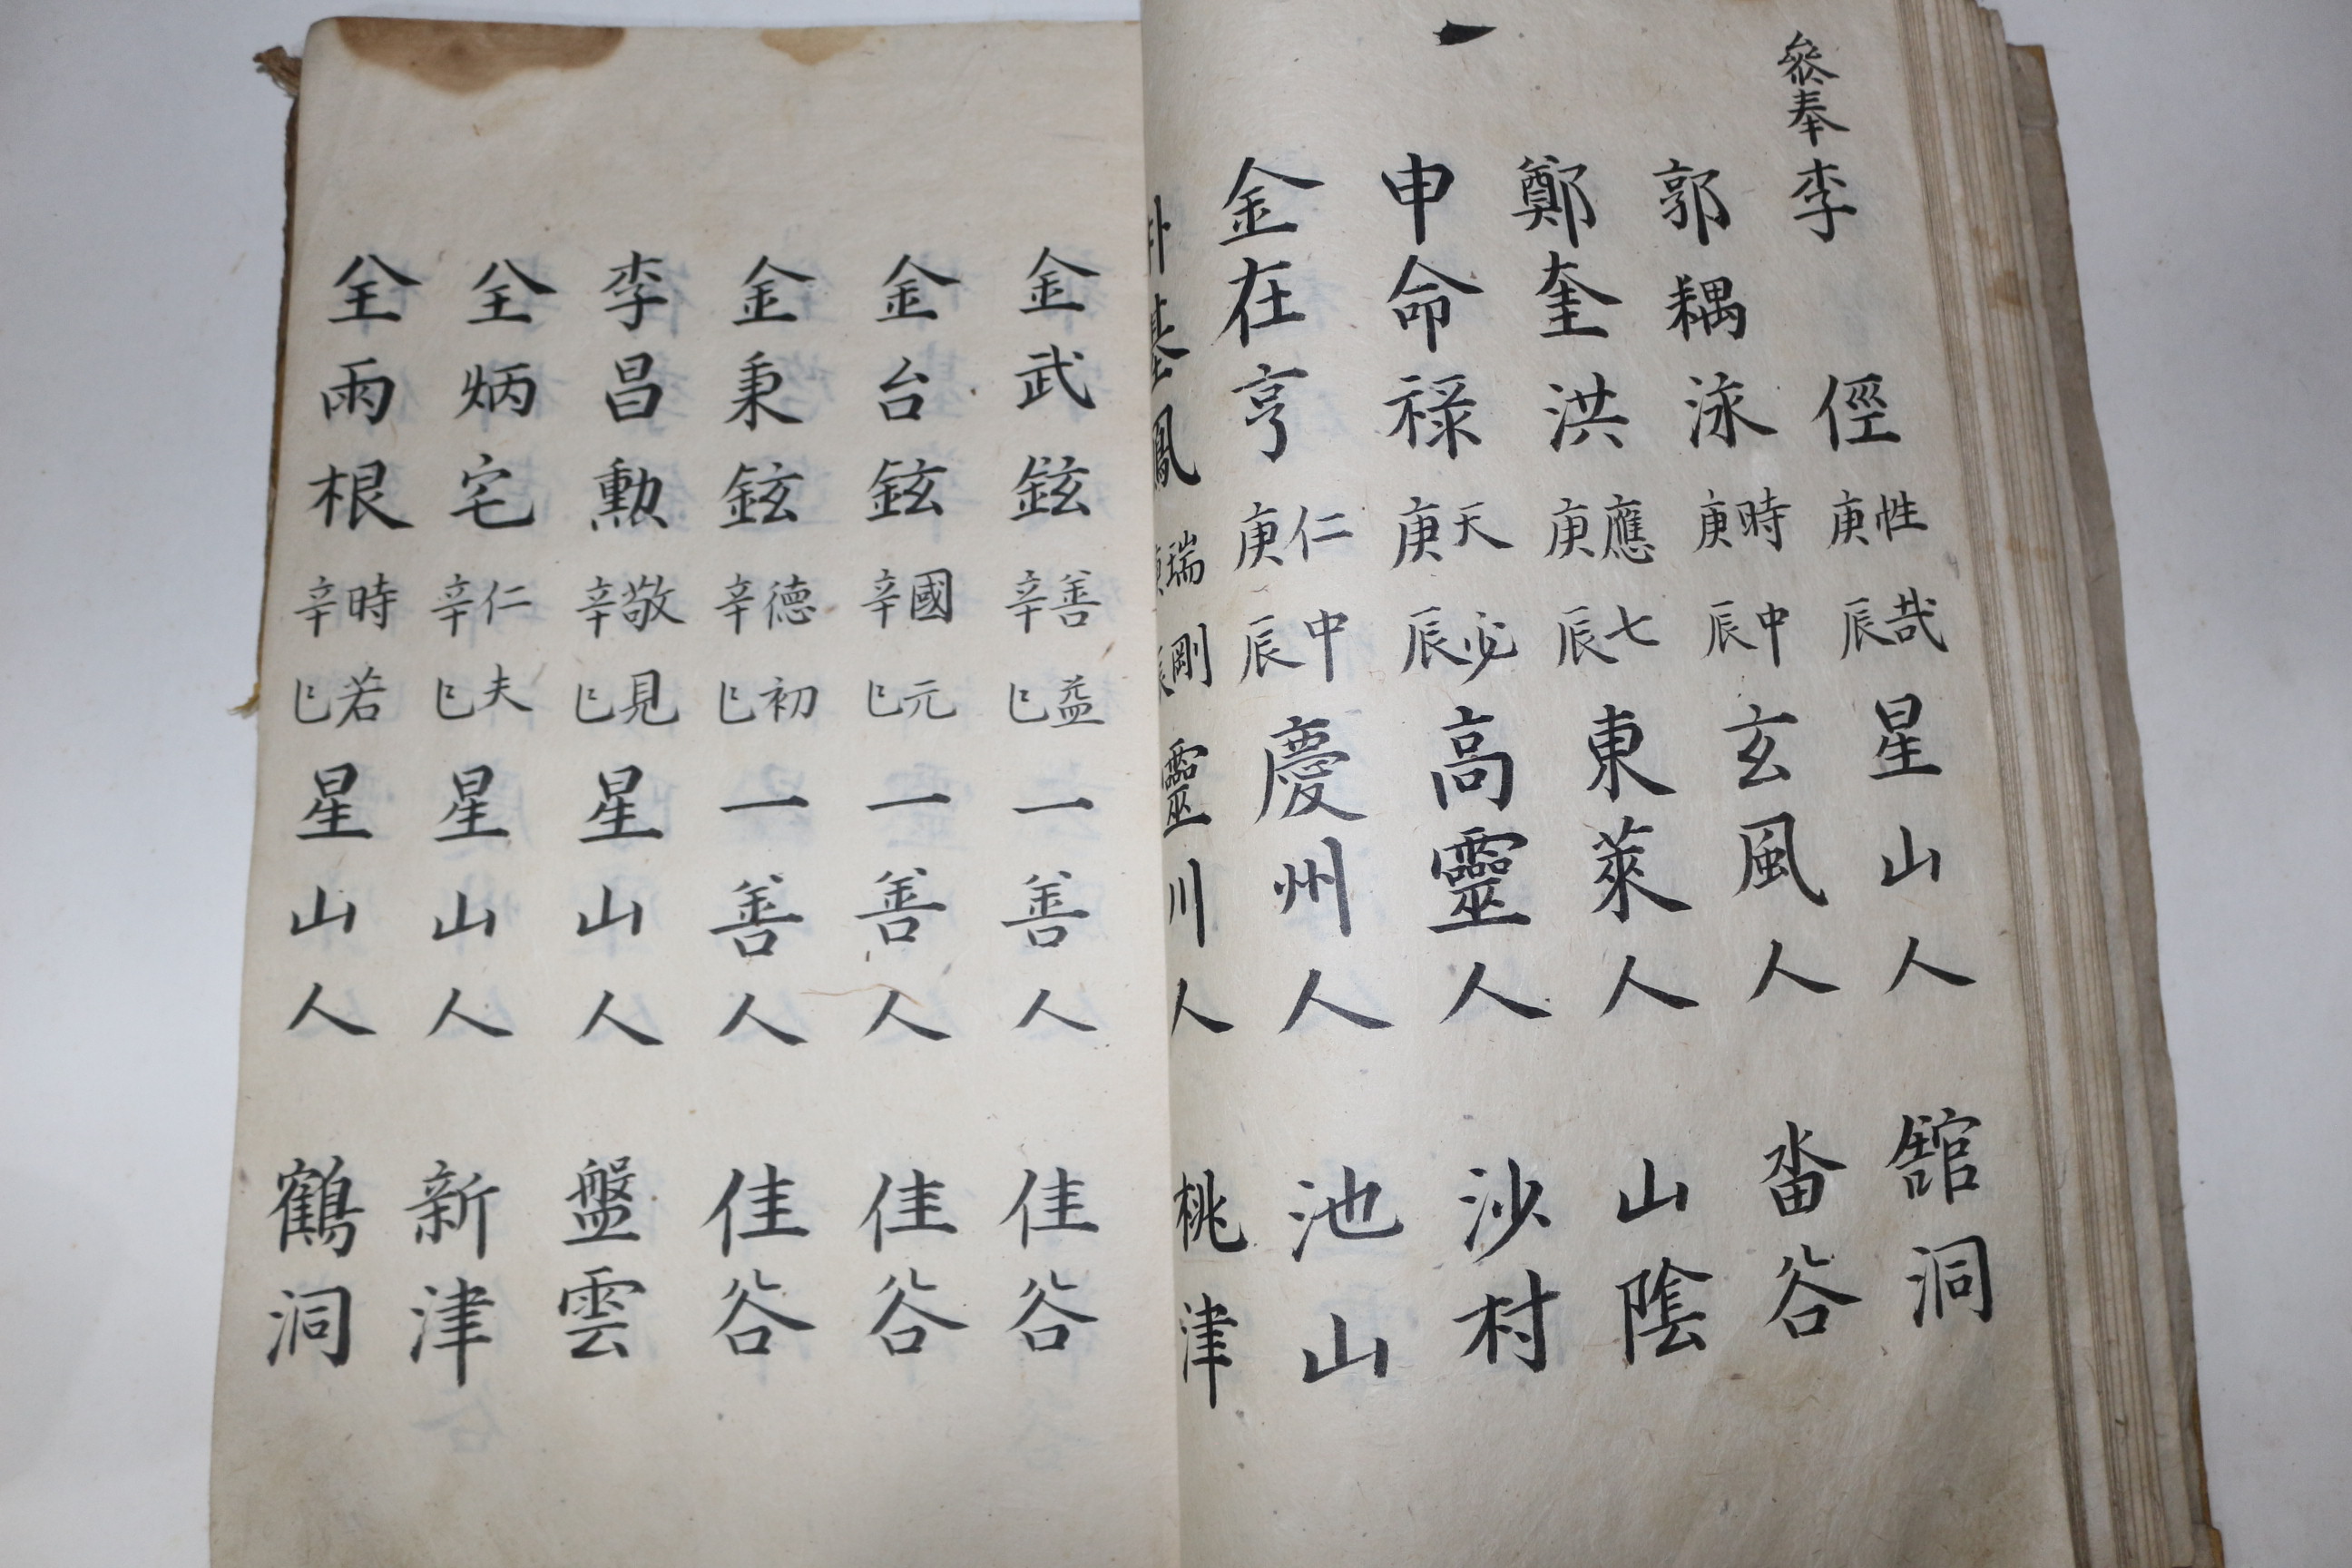 叅奉李 俓 性哉 庚辰 星山人 舘洞
郭耦泳 時中 庚辰 玄風人 畓谷
鄭奎洪 應七 庚辰 東萊人 山陰
申命祿 天必 庚辰 高靈人 沙村
金在亨 仁中 庚辰 慶州人 池山
基鳳 瑞剛 庚辰 靈川人 桃津
金武鉉 善益 辛巳 一善人 佳谷
金台鉉 國元 辛巳 一善人 佳谷
金秉鉉 德初 辛巳 一善人 佳谷
李昌勳 敬見 辛巳 星山人 盤雲
全炳宅 仁夫 辛巳 星山人 新津
全雨根 時若 辛巳 星山人 鶴洞